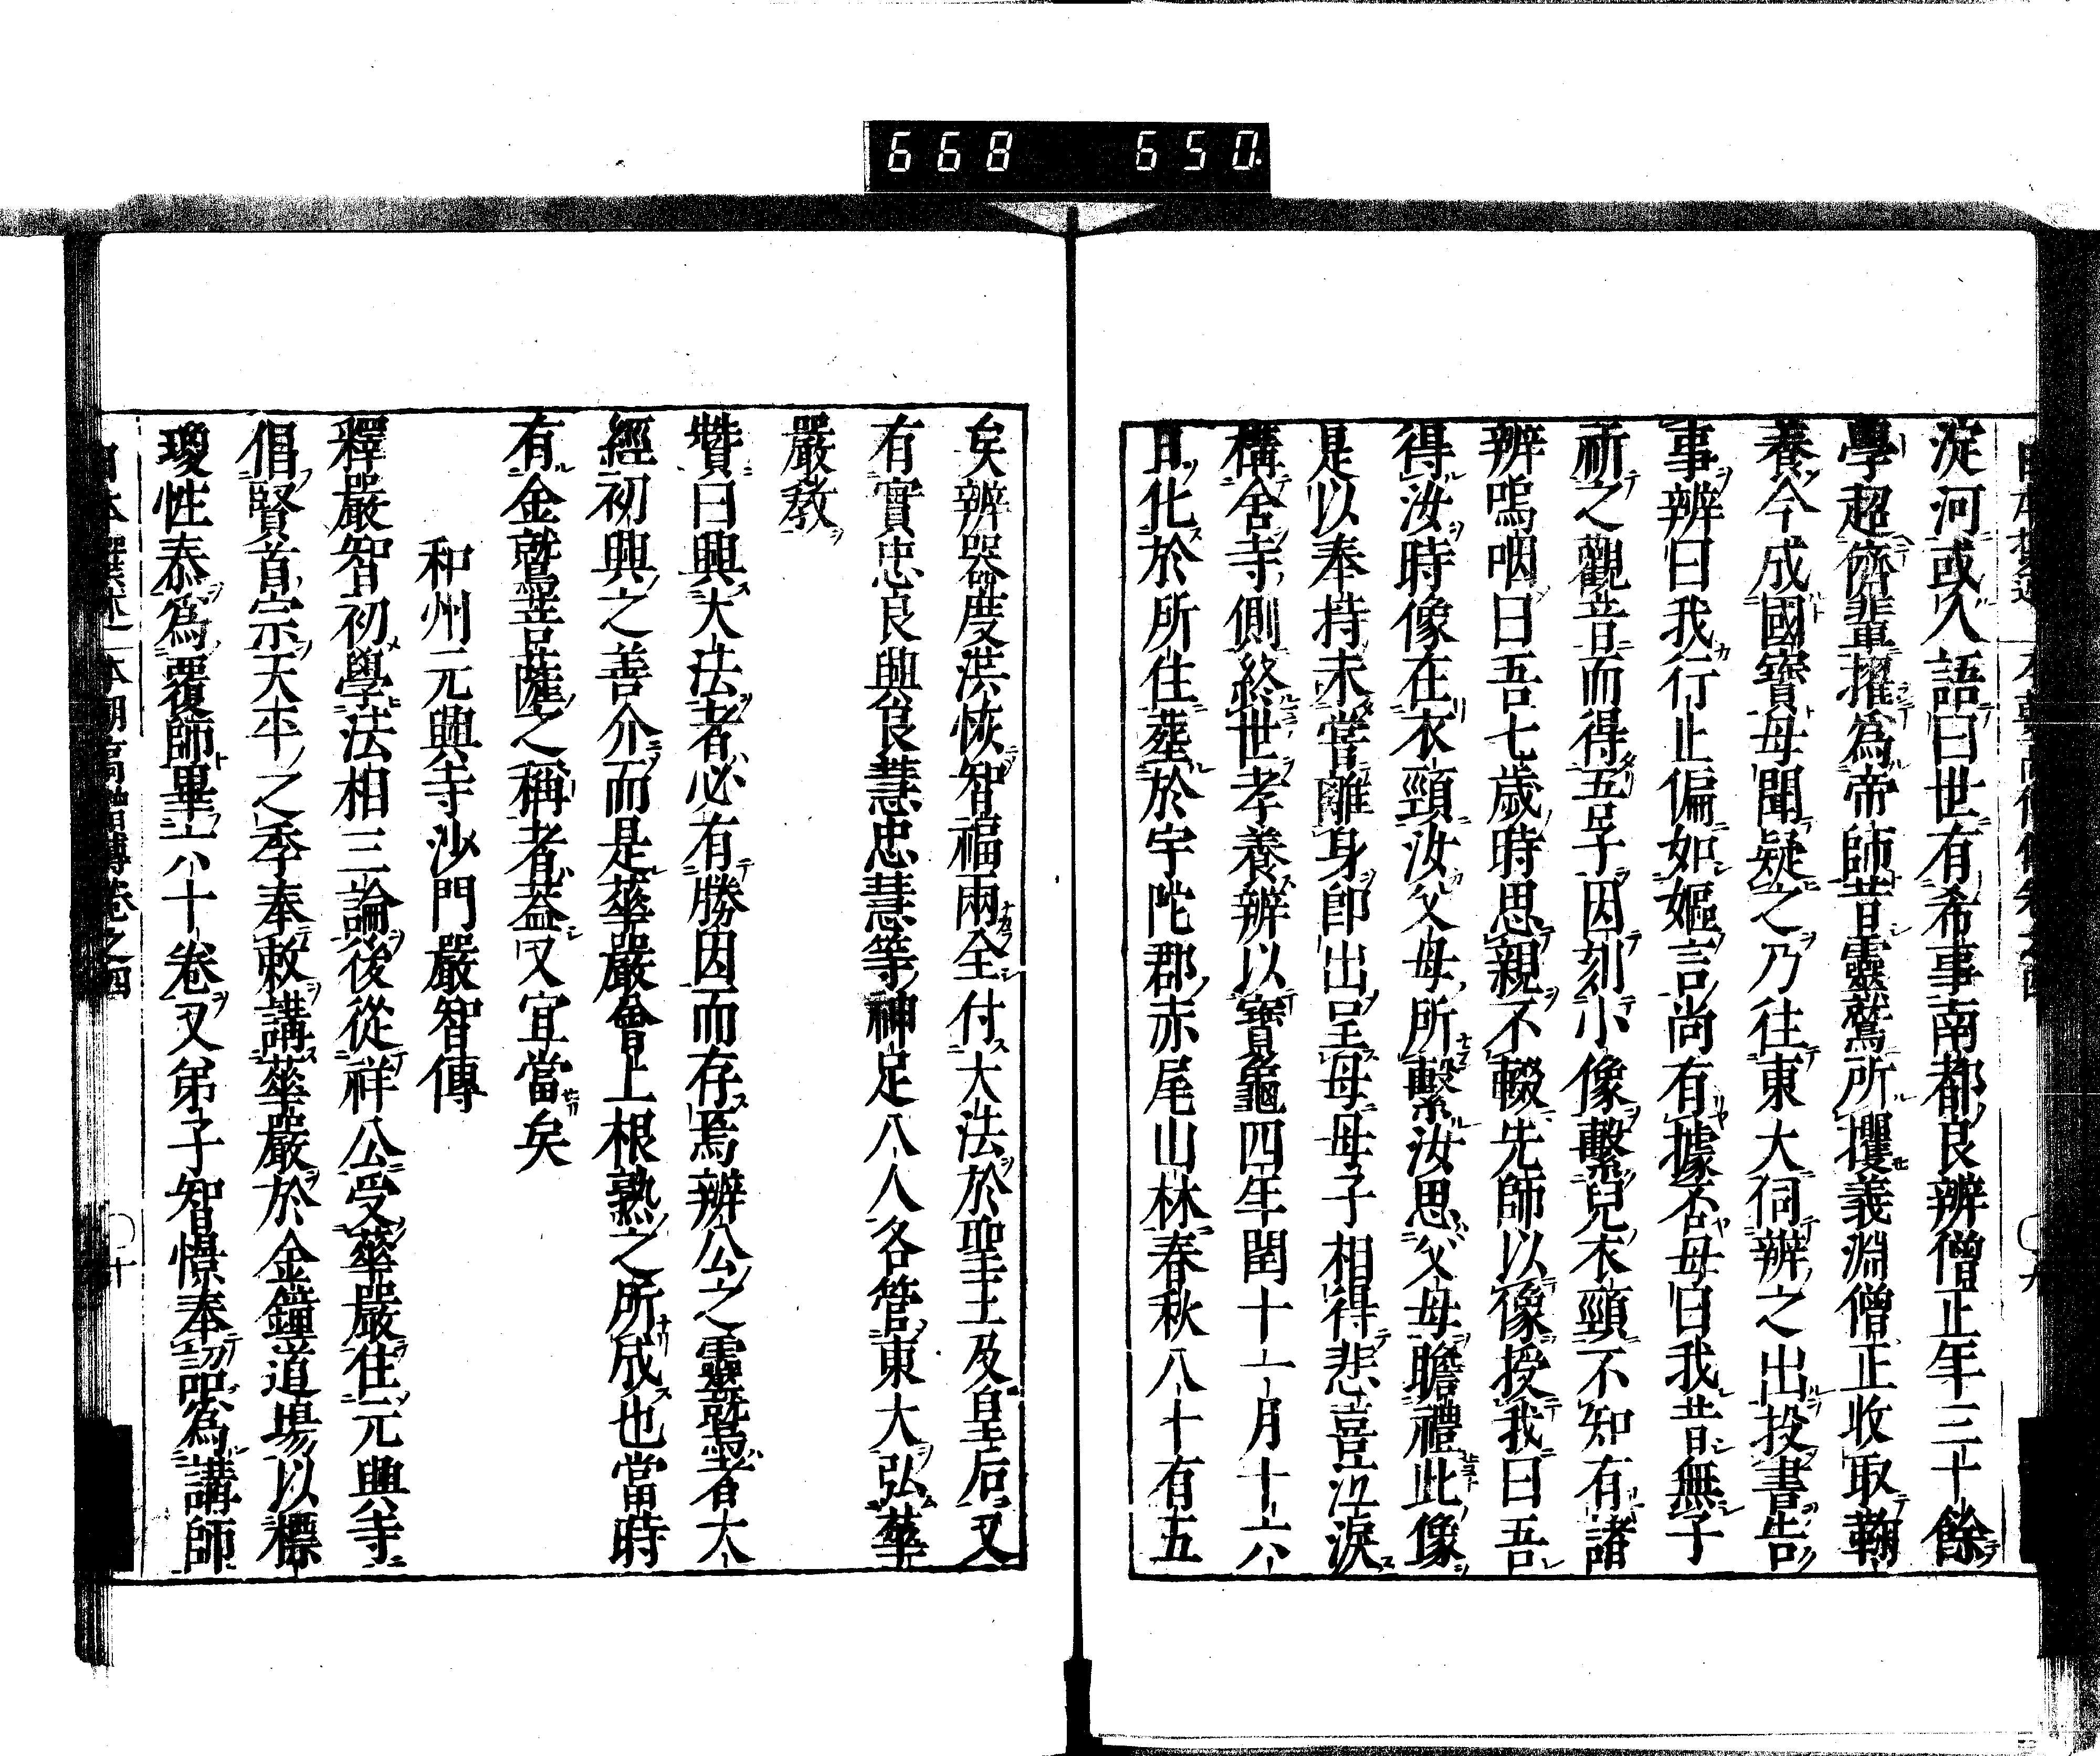 668 650.
淀河或人語曰世有希事南都良辨僧正年三十餘
學超儕輩擢爲帝師昔靈鷲所攫義淵僧正收取鞠
養今成國寶母聞疑之乃往東大伺辨之出投書告
事辨曰我行止偏如嫗言尚有據否母曰我昔無子
祈之觀音而得五子因刻小像繫兒衣頸不知有諸
辨嗚咽曰吾七歲時思親不輟先師以像授我曰吾
得汝時像在衣頸汝父母所繫汝思父母瞻禮此像
是以奉持未嘗離身即出呈母母子相得悲喜泣淚
構舍寺側終世孝養辨以寶龜四年閏十一月十六
日化於所住葬於宇陀郡赤尾山林春秋八十有五
矣辨器度洪恢智福兩全付大法於聖王及皇后又
有實忠良興良慧忠慧等神足八人各管東大弘華
嚴教
贊曰興大法者必有勝因而存焉辨公之靈鷲者大
經初興之善介而是華嚴會上根熟之所成也當時
有金鷲菩薩之稱者蓋又宜當矣
和州元興寺沙門嚴智傳
釋嚴智初學法相三論後從祥公受華嚴住元興寺
倡賢首宗天平之季奉敕講華嚴於金鐘道場以標
瓊性泰爲覆師畢六十卷又弟子智憬奉詔爲講師
日本撰述 本朝高僧傳卷之四 〇十